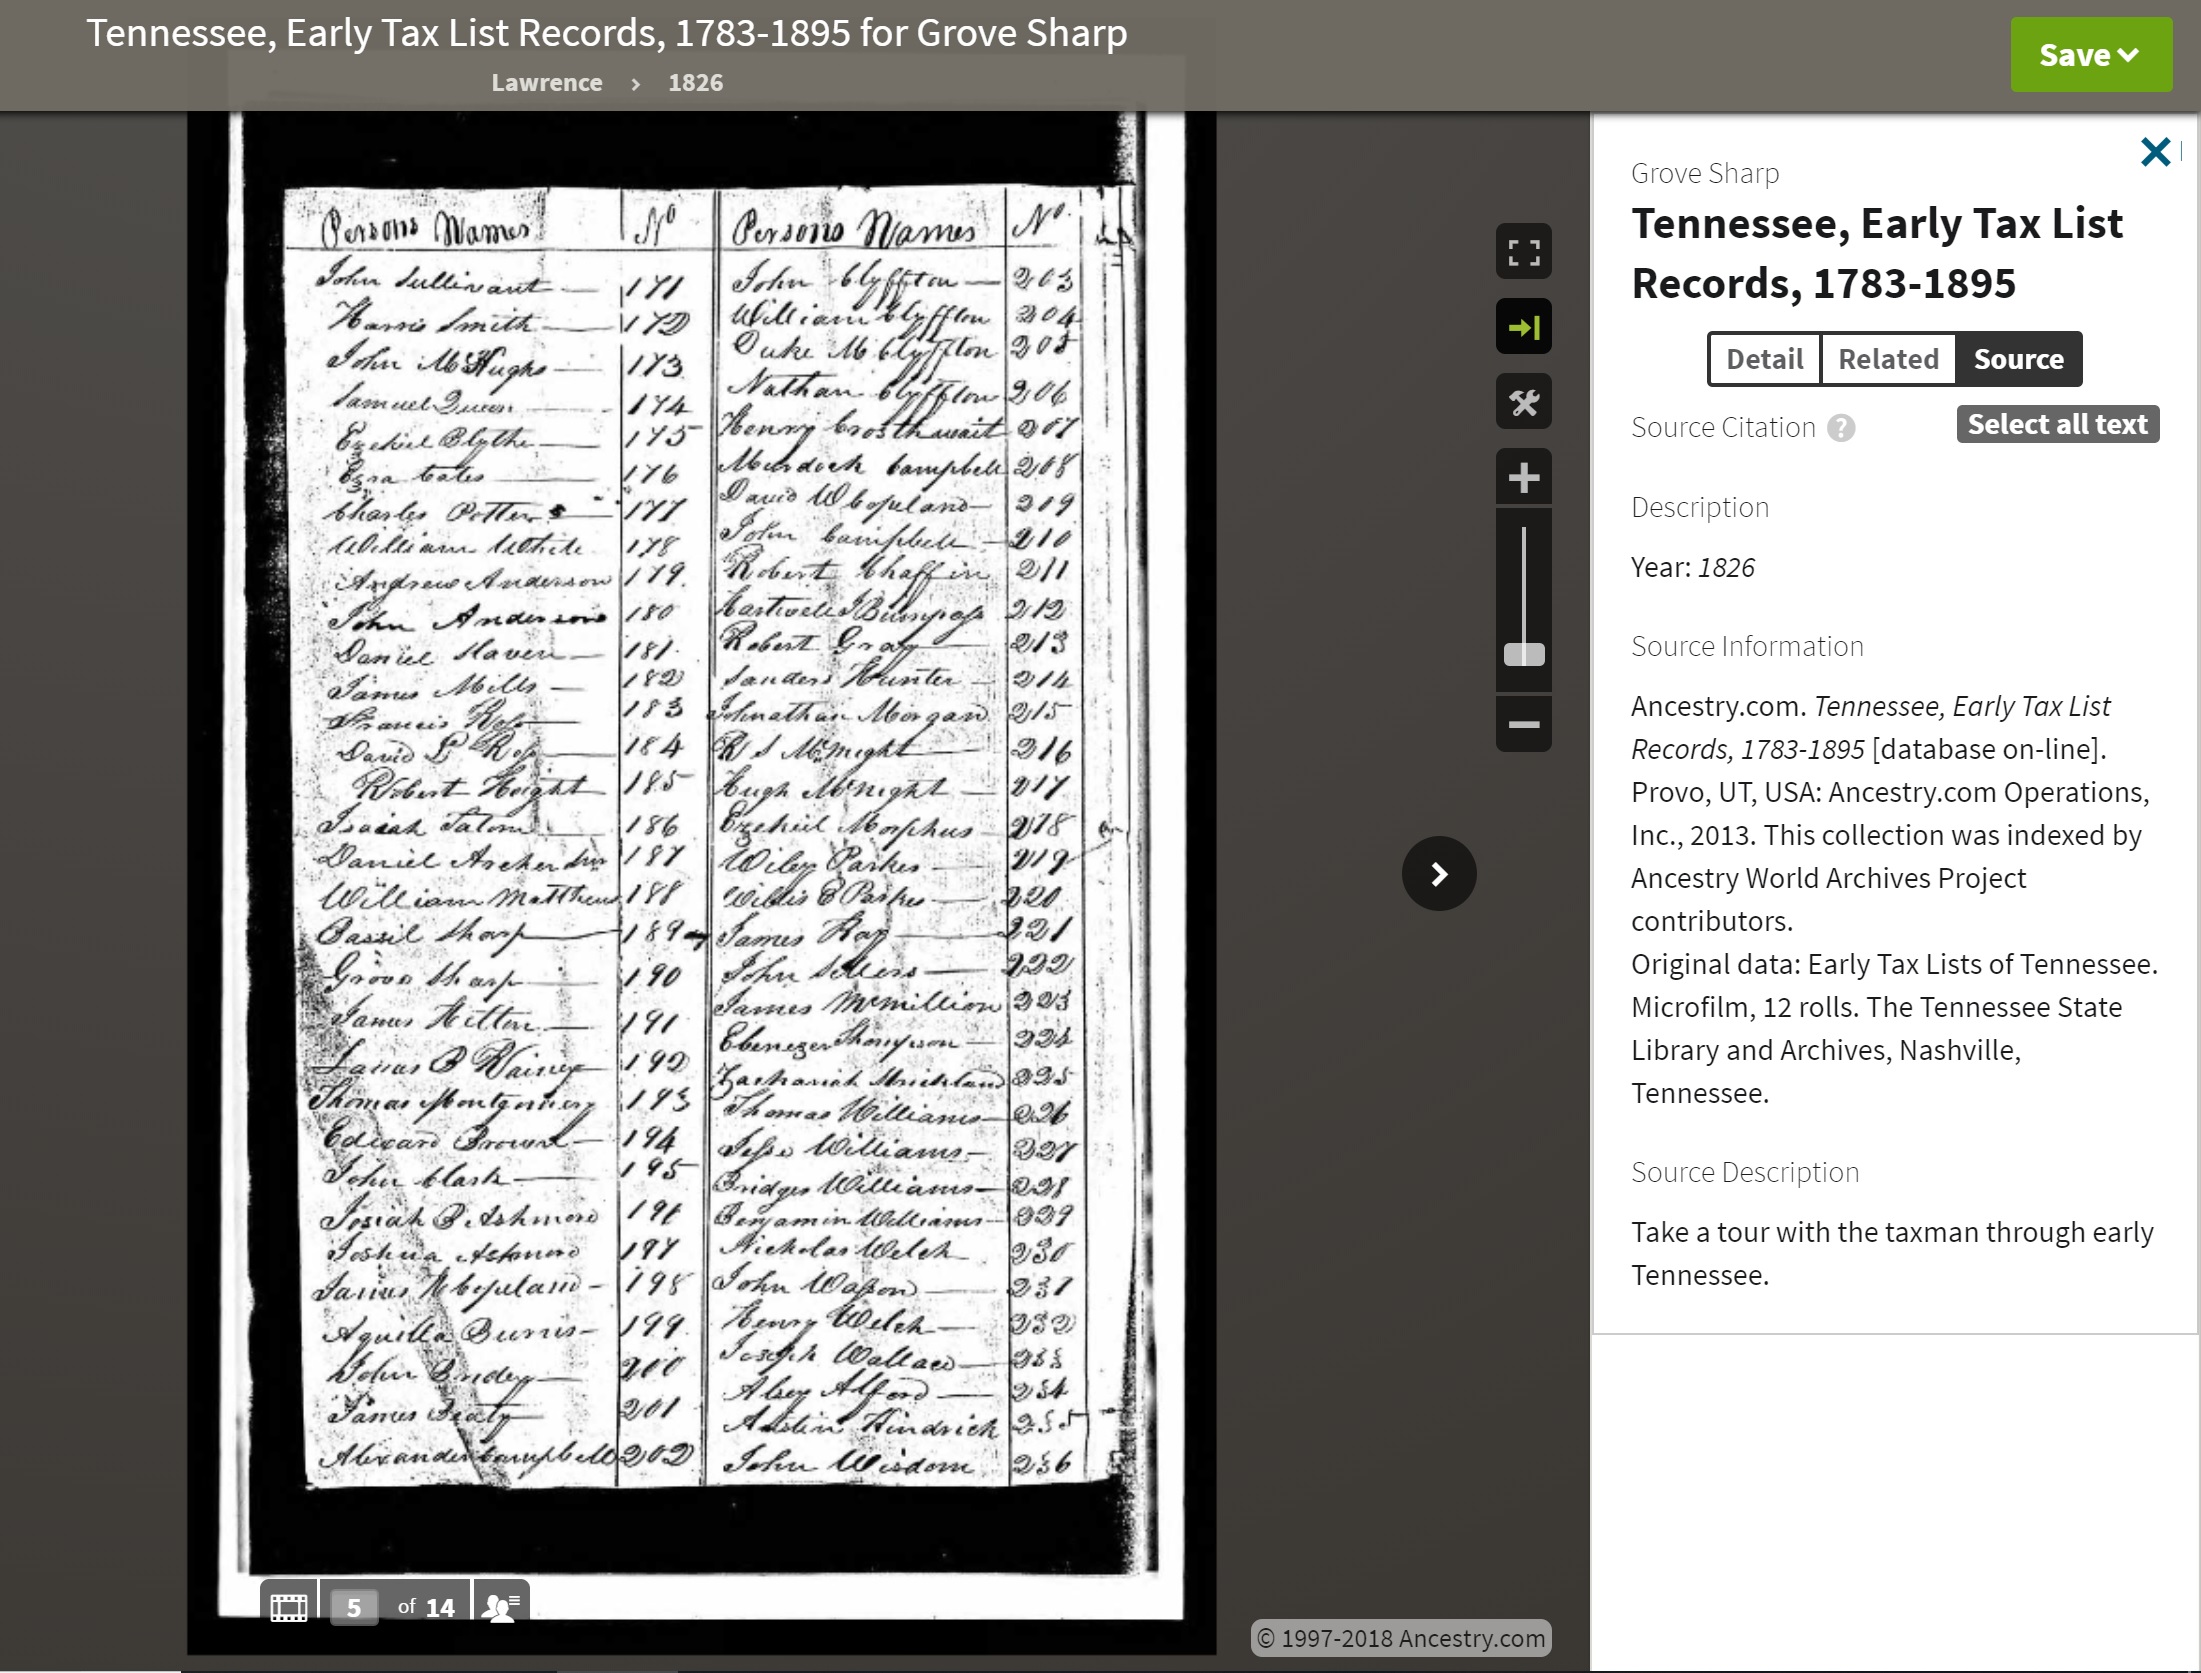 Tennessee, Early Tax List Records, 1783-1895 for Grove Sharp
Lawrence > 1826
Save
Persons Names No Persons Names No.
John Sullivant 171 John Clyffton 203
Harris Smith 172 William Clyffton 204
John McHughs 173 Duke M Clyffton 205
Samuel Queen 174 Nathan Clyffton 206
Ezekiel Blythe 175 Henry Crosthwait 207
Ezra Cates 176 Murdoch Campbell 208
Charles Potter 177 David W Copeland 209
William White 178 John Campbell 210
Andrew Anderson 179. Robert Chaffin 211
John Anderson 180 Hartwell J Bumpass 212
Daniel 181. Robert Gray 213
James Mills 182 Sanders Hunter 214
Francis Ross 183 Johnathan Morgan 215
David L Ross 184 R S McNight 216
Robert Hoight 185 Hugh McNight 217
Isaiah Tatom 186 Ezekiel Morphus 218
Daniel Archer 187 Wiley Parkes 219
William Matthews 188 Willis C Parkes 220
Bassil Sharp 189 James Ray 221
Grove Sharp 190 John Sellers 222
James Hilton 191 James McMillion 223
B Rainey 192 Ebenezer Thompson 224
Thomas Montgomery 193 Zachariah Strickland 225
Edward Brown 194 Thomas Williams 226
John Clark 195 Jesse Williams 227
Josiah B Ashmore 196 Bridges Williams 228
Joshua Ashmore 197 Benjamin Williams 229
James Copeland 198 Nicholas Welch 230
Aquilla Burris 199. John Wasson 231
John 200 Henry Welch 232
James 201 Joseph Wallace 233
Alexander Campbell 202 Alsey Alford 234
Austin Hindrick 235
John Wisdom 236
5 of 14
© 1997-2018 Ancestry.com
Grove Sharp
Tennessee, Early Tax List
Records, 1783-1895
Detail Related Source
Source Citation ? Select all text
Description
Year: 1826
Source Information
Ancestry.com. Tennessee, Early Tax List
Records, 1783-1895 [database on-line].
Provo, UT, USA: Ancestry.com Operations,
Inc., 2013. This collection was indexed by
Ancestry World Archives Project
contributors.
Original data: Early Tax Lists of Tennessee.
Microfilm, 12 rolls. The Tennessee State
Library and Archives, Nashville,
Tennessee.
Source Description
Take a tour with the taxman through early
Tennessee.